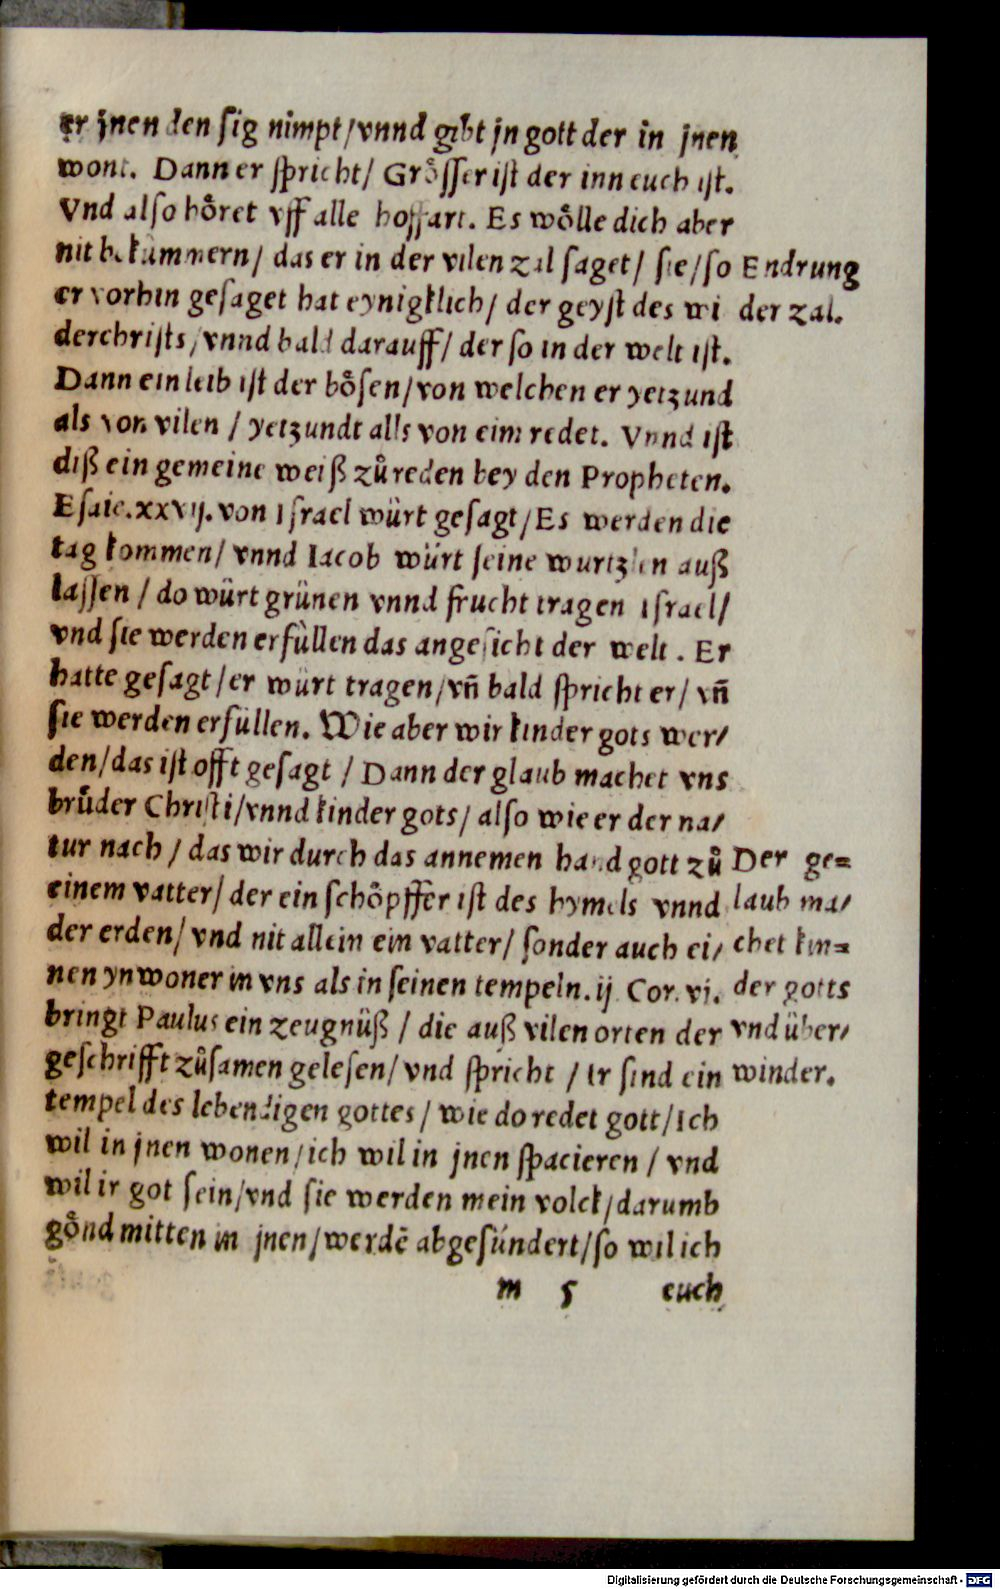 er jnen den ſig nimpt/vnnd gibt jn gott der in jnen
wont. Dann er ſpricht/ Groͤſſer iſt der inn euch iſt.
Vnd alſo hoͤret vff alle hoffart. Es woͤlle dich aber
nit bekümmern/ das er in der vilen zal ſaget/ ſie/ſo
er vorhin geſaget hat eynigklich/ der geyſt des wi
derchriſts/vnnd bald darauff/ der ſo in der welt iſt.
Dann ein leib iſt der boͤſen/von welchen er yetzund
als von vilen / yetzundt alls von eim redet. Vnnd iſt
diß ein gemeine weiß zů reden bey den Propheten.
Eſaie.xxvij. von Iſrael würt geſagt/Es werden die
tag kommen/ vnnd Iacob würt ſeine wurtzlen auß
laſſen / do würt grünen vnnd frucht tragen Iſrael/
vnd ſie werden erfüllen das angeſicht der welt . Er
hatte geſagt/er würt tragen/vñ bald ſpricht er/ vñ
ſie werden erfüllen. Wie aber wir kinder gots wer/
den/das iſt offt geſagt / Dann der glaub machet vns
brůder Chriſti/vnnd kinder gots/ alſo wie er der na/
tur nach / das wir durch das annemen hand gott zů
einem vatter/ der ein ſchoͤpffer iſt des hymels vnnd
der erden/ vnd nit allein ein vatter/ ſonder auch ei/
nen ynwoner in vns als in ſeinen tempeln. ij. Cor. vj.
bringt Paulus ein zeugnüß / die auß vilen orten der
geſchrifft zůſamen geleſen/ vnd ſpricht / Ir ſind ein
tempel des lebendigen gottes/ wie do redet gott/Ich
wil in jnen wonen/ich wil in jnen ſpacieren / vnd
wil ir got ſein/vnd ſie werden mein volck/darumb
goͤnd mitten in jnen/werdē abgeſündert/ſo wil ich
m 5 euch
Endrung
der zal.
Der ge=
laub ma/
chet kin=
der gotts
vnd über/
winder.
Digitalisierung gefördert durch die Deutsche Forschungsgemeinschaft - DFG